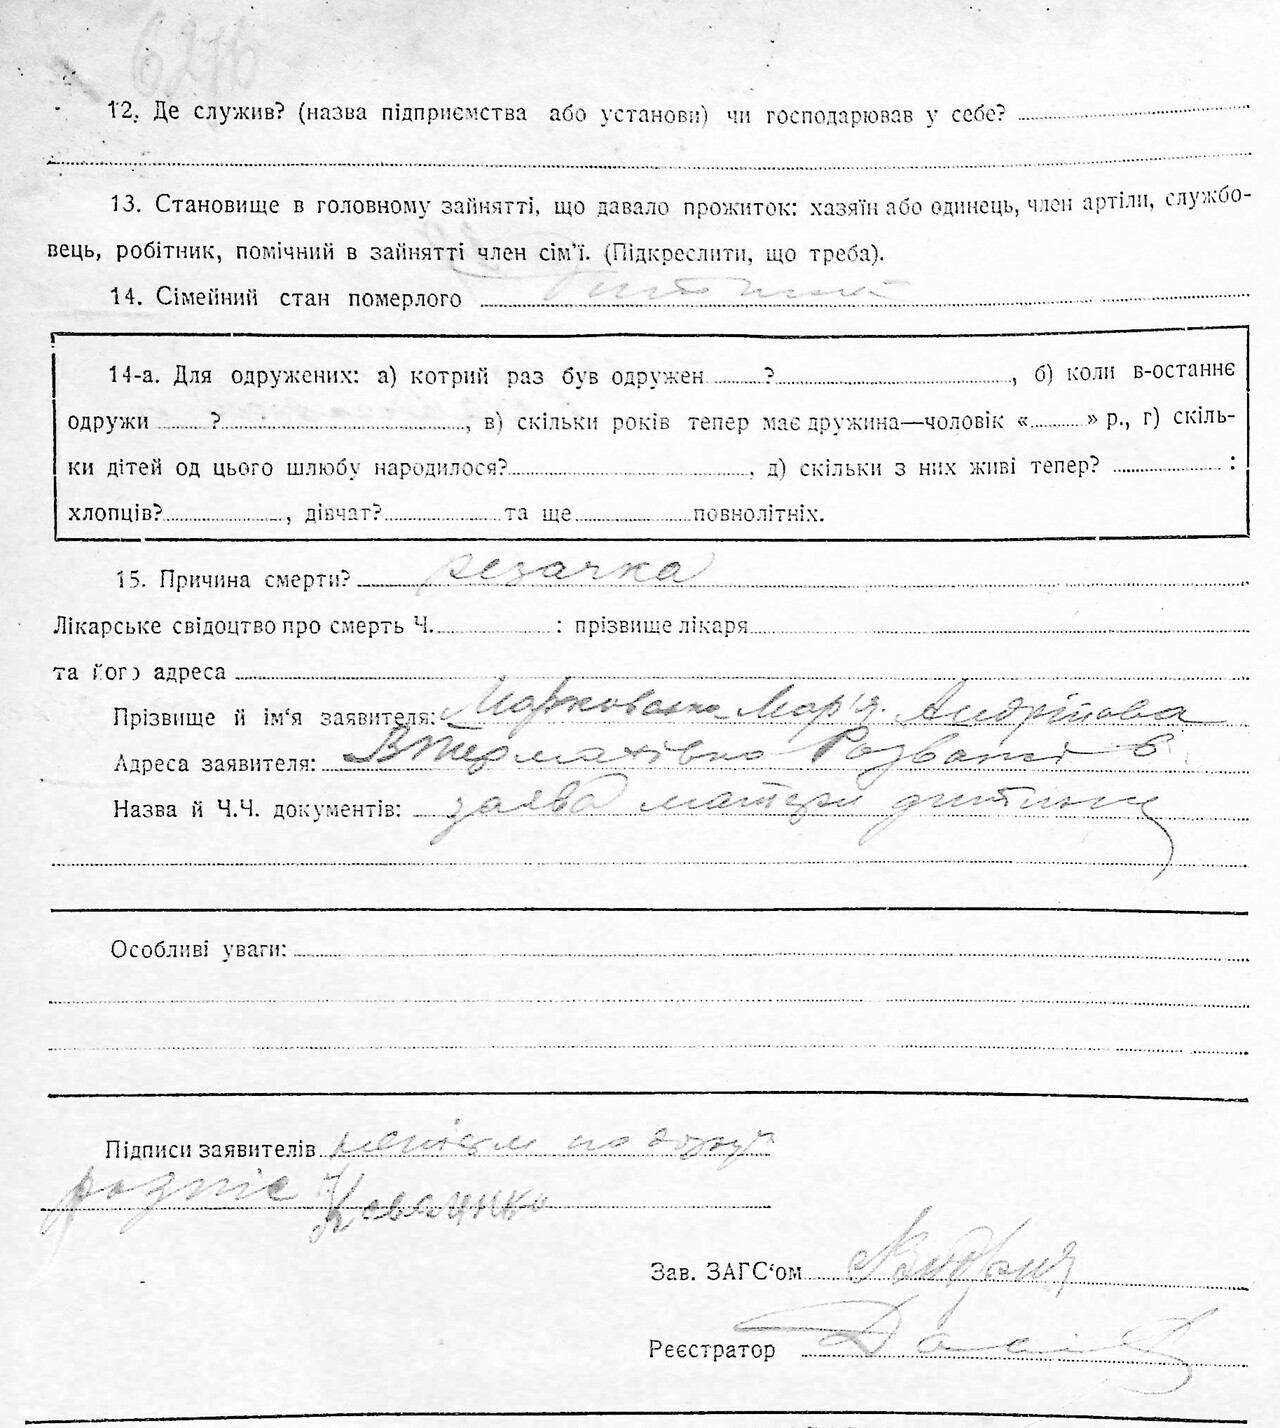 6276
12. Де служив? (назва підприємства або установи) чи господарював у себе?
13. Становище в головному зайнятті, що давало прожиток: хазяїн або одинець, член артіли, службо-
вець, робітник, помічний в зайнятті член сім'ї. (Підкреслити, що треба).
14. Сімейний стан померлого
14-а. Для одружених: а) котрий раз був одружен ?, б) коли в-останнє
одружи ?, в) скільки років тепер має дружина—чоловік « » р., г) скіль-
ки дітей од цього шлюбу народилося?, д) скільки з них живі тепер? :
хлопців?, дівчат? та ще повнолітніх.
15. Причина смерти? резачка
Лікарське свідоцтво про смерть Ч. : прізвище лікаря
та його адреса
Прізвище й ім'я заявителя: Мар'я Андріївова
Адреса заявителя: Розважів
Назва й Ч.Ч. документів: заява матери дитини
Особливі уваги:
Підписи заявителів
розпис
Зав. ЗАГС'ом
Реєстратор